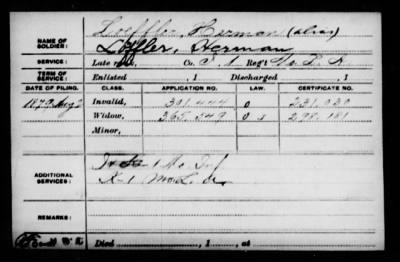 NAME OF SOLDIER: Loeffler Herman (alias)
Löffler, Herman
SERVICE: Late rank, Co. I, 1 Reg't Mo. L. A.
TERM OF SERVICE: Enlisted , 1 Discharged , 1
DATE OF FILING. CLASS. APPLICATION NO. LAW. CERTIFICATE NO.
1879 Aug 2 Invalid, 301.444 O 231.030
Widow, 365.549 O 298.181
Minor,
ADDITIONAL SERVICES: 1 Mo Inf
K-1 Mo L. A.
REMARKS:
Died , 1 , at